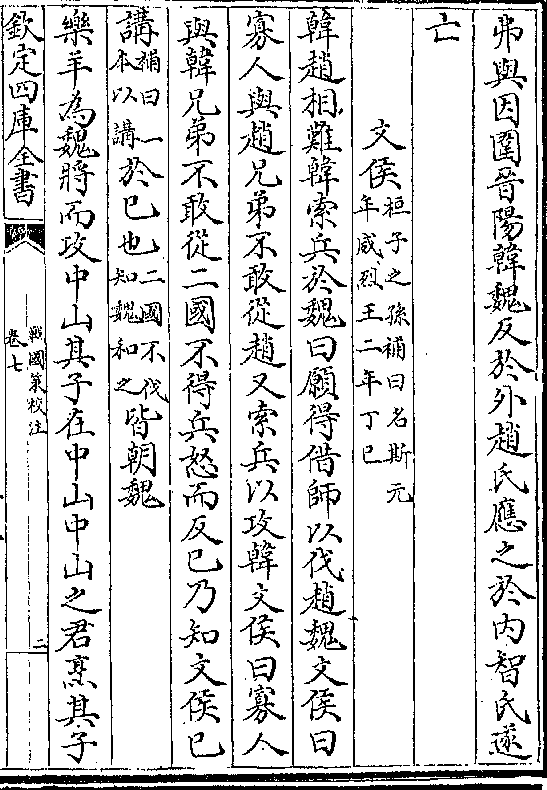 弗與因圍晉陽韓魏反於外趙氏應之於内智氏遂
亡
文侯桓子之孫補曰名斯元年威烈王二年丁巳
韓趙相難韓索兵於魏曰願得借師以伐趙魏文侯曰
寡人與趙兄弟不敢從趙又索兵以攻韓文侯曰寡人
與韓兄弟不敢從二國不得兵怒而反已乃知文侯已
講補曰一本以講於已也二國不伐知魏和之皆朝魏
樂羊為魏將而攻中山其子在中山中山之君烹其子
欽定四庫全書
戰國策校注
卷七
二